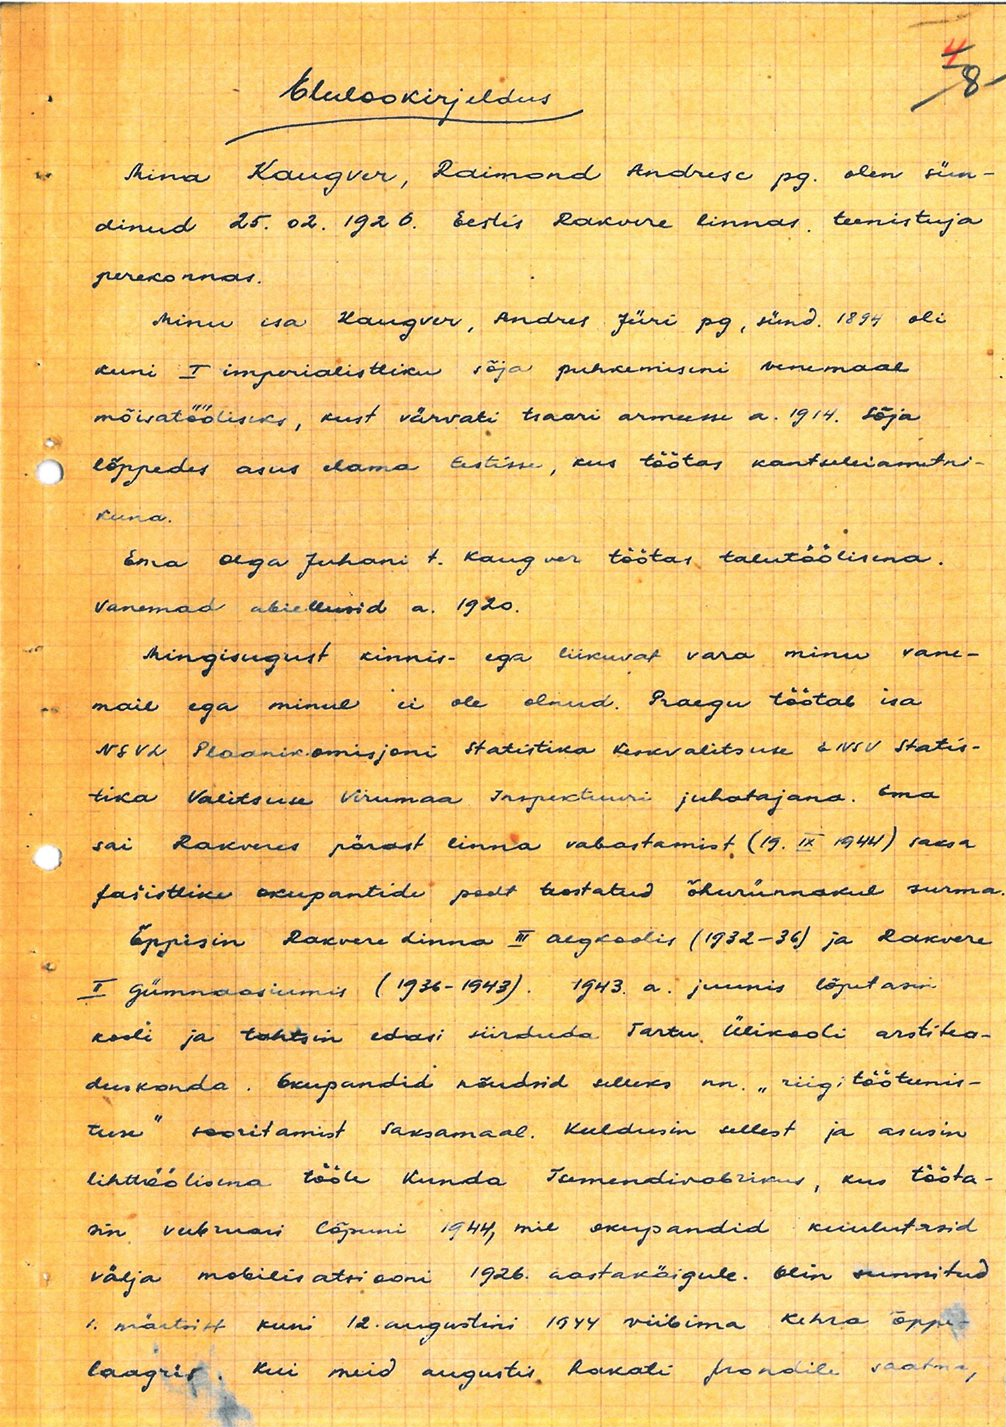 4
8
Elulookirjeldus
Mina Kaugver, Raimond Andrese pg. olen sün-
dinud 25. 02. 1926. Eestis Rakvere linnas, teenistuja
perekonnas.
Minu isa Kaugver, Andres Jüri pg, sünd. 1894 oli
kuni I imperialistliku sõja puhkemiseni venemaal
mõisatööliseks, kust värvati tsaari armeesse a. 1914. Sõja
lõppedes asus elama Eestisse, kus töötas kantseleiametni-
kuna.
Ema Olga Juhani t. Kaugver töötas talutöölisena.
Vanemad abiellusid a. 1920.
Mingisugust kinnis- ega liikuvat vara minu vane-
mail ega minul ei ole olnud. Praegu töötab isa
NSVL Plaanikomisjoni Statistika Keskvalitsuse ENSV Statis-
tika Valitsuse Virumaa Inspektuuri juhatajana. Ema
sai Rakveres pärast linna vabastamist (19. IX 1944) saksa
fašistlike okupantide poolt teostatud õhurünnakul surma.
Õppisin Rakvere Linna III algkoolis (1932-36) ja Rakvere
I Gümnaasiumis (1936-1943). 1943. a. juunis lõpetasin
kooli ja tahtsin edasi siirduda Tartu Ülikooli arstitea-
duskonda. Okupandid nõudsid selleks nn. „riigitööteenis-
tuse" sooritamist Saksamaal. Keeldusin sellest ja asusin
lihttöölisena tööle Kunda Tsemendivabrikus, kus tööta-
sin veebruari lõpuni 1944, mil okupandid kuulutasid
välja mobilisatsiooni 1926. aastakäigule. Olin sunnitud
1. märtsist kuni 12. augustini 1944 viibima Kehra õppe-
laagris. Kui meid augustis Rakati frondile saatma,